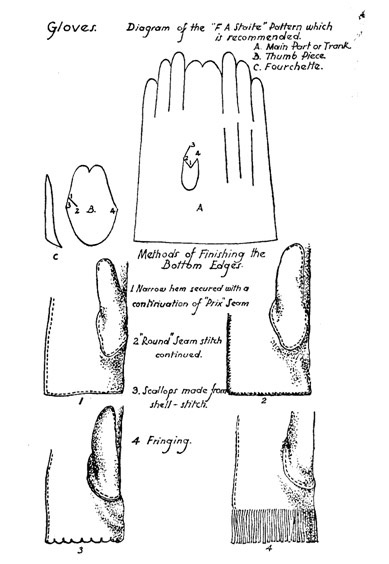 Gloves.
Diagram of the "F A Staite" Pattern which
is recommended.
A. Main Part or Trank.
B. Thumb Piece.
C. Fourchette.
3
4
2 1
1
3 2
B.
4
A
C
Methods of Finishing the
Bottom Edges.
1 Narrow hem secured with a
continuation of "Prix" Seam
2 "Round" Seam stitch
continued.
1
2
3. Scallops made from
shell-stitch.
4 Fringing.
3
4